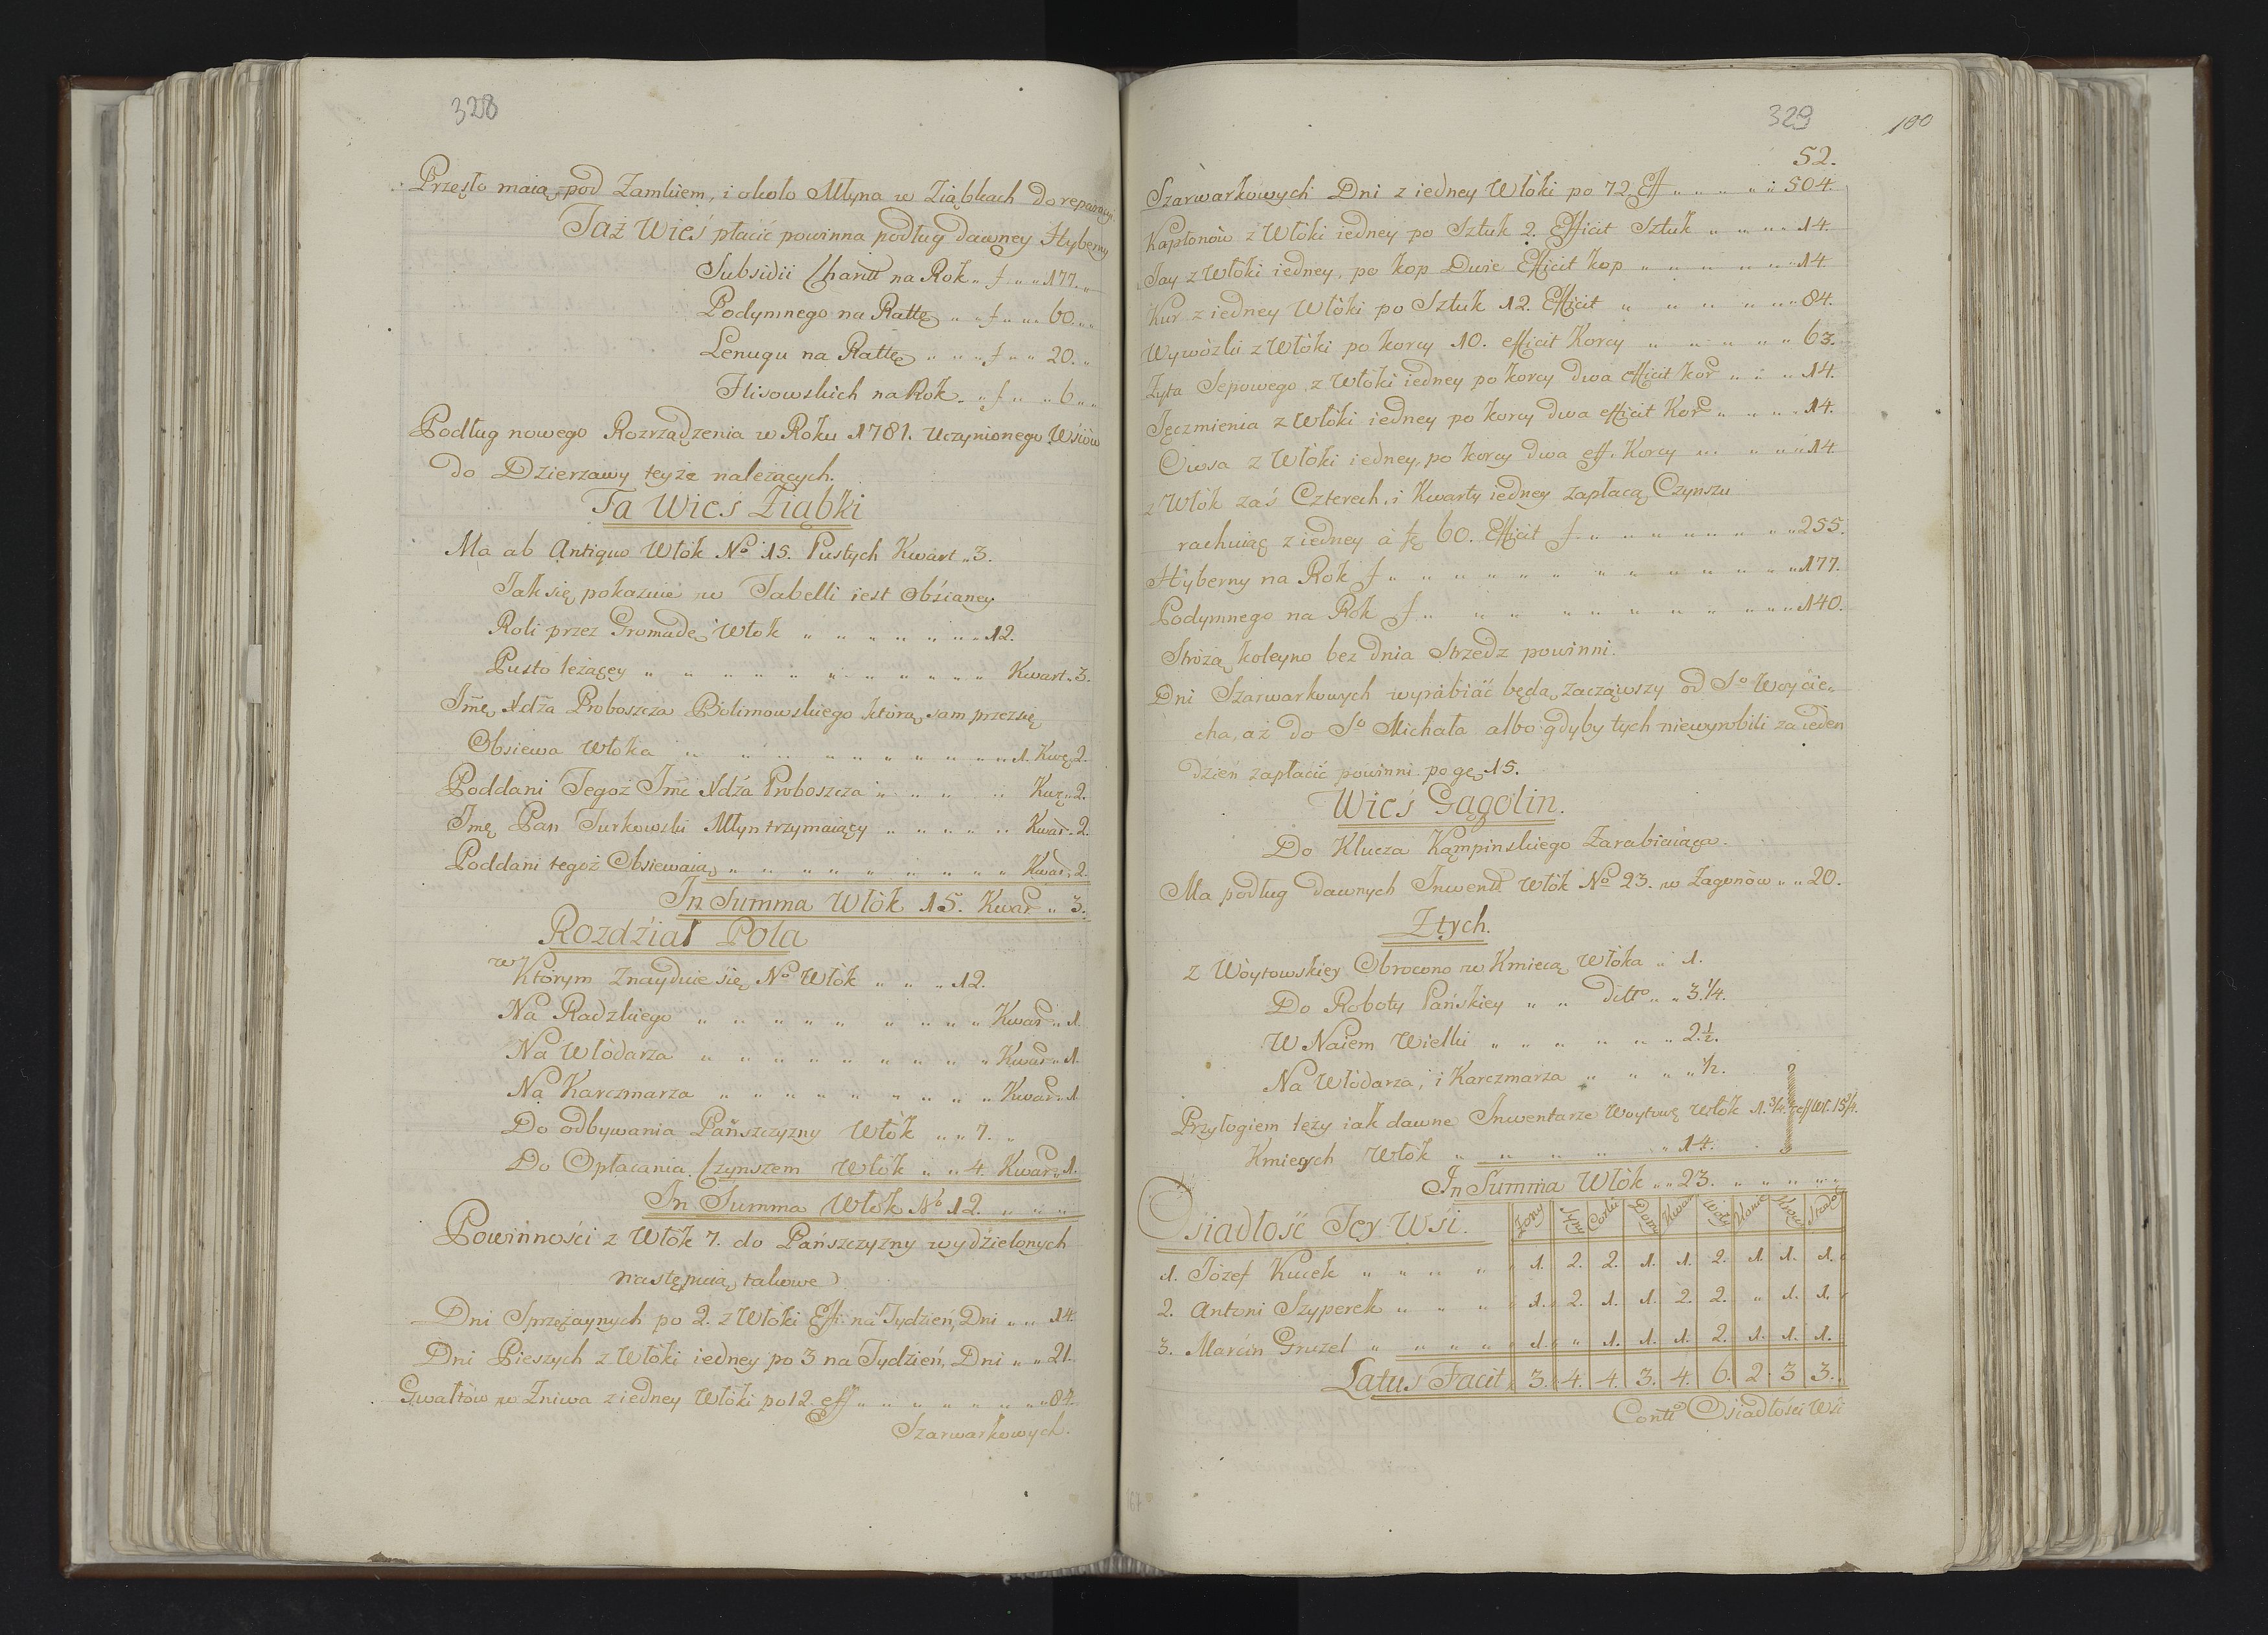 328
Przęsło maią pod Zamkiem, i około Młyna w Ziąbkach do reparacyi.
Taż Wieś płacić powinna podług dawney Hyberny
Subsidii Charitt na Rok „ f „ „ 177. „
Podymnego na Rattę „ „ f „ „ 60. „
Lenugu na Rattę „ „ „ f „ „ 20. „
Flisowskich na Rok „ „ f „ „ 6 „ „
Podług nowego Rozrządzenia w Roku 1781. Uczynionego Wsiów
do Dzierzawy teyże należących.
Ta Wieś Ziąbki
Ma ab Antiquo Włók No 15. Pustych Kwart „ 3.
Jak się pokazuie w Tabelli iest Obsianey
Roli przez Gromadę Włok „ „ „ „ „ „ „ 12.
Pusto leżącey „ „ „ „ „ „ „ „ „ „ Kwart „ 3.
Jmę Xdza Proboszcza Bolimowskiego którą sam przez się
Obsiewa Włoka „ „ „ „ „ „ „ „ „ „ 1. Kwę 2.
Poddani Tegoż Jmć Xdza Proboszcza „ „ „ „ Kwę „ 2.
Jmę Pan Turkowski Młyn trzymaiący „ „ „ „ „ Kwar „ 2.
Poddani tegoż Obsiewaią „ „ „ „ „ „ „ „ „ Kwar „ 2.
In Summa Włók 15. Kwar „ 3.
Rozdział Pola
w Którym Znayduie się No Włók „ „ „ 12.
Na Radzkiego „ „ „ „ „ „ „ „ „ Kwar „ 1.
Na Włodarza „ „ „ „ „ „ „ „ „ Kwar „ 1.
Na Karczmarza „ „ „ „ „ „ „ „ „ Kwar „ 1
Do odbywania Pańszczyzny Włók „ „ 7. „
Do Opłacania Czynszem Włók „ „ 4. Kwar „ 1.
In Summa Włók No 12. „ „ „
Powinności z Włók 7. do Pańszczyzny wydzielonych
następuią takowe
Dni Sprzężaynych po 2. z Włóki Eff. na Tydzień, Dni „ „ 14.
Dni Pieszych z Włóki iedney po 3 na Tydzień, Dni „ „ 21.
Gwałtów w Żniwa z iedney Włóki po 12. eff „ „ „ „ „ „ „ 84.
Szarwarkowych.
329
100
52.
Szarwarkowych Dni z iedney Włóki po 72 Eff „ „ „ „ „ 504.
Kapłonów z Włóki iedney po Sztuk 2. Efficit Sztuk „ „ „ „ 14.
Jay z Włóki iedney, po kop Dwie Efficit kop „ „ „ „ „ „ 14.
Kur z iedney Włóki po Sztuk 12. Efficit „ „ „ „ „ „ 84.
Wywózki z Włóki po korcy 10. efficit Korcy „ „ „ „ „ 63.
Żyta Sepowego z Włóki iedney po korcy dwa efficit kor „ „ „ 14.
Jęczmienia z Włóki iedney po korcy dwa efficit Kor „ „ „ „ 14.
Owsa z Włóki iedney, po korcy dwa eff. Korcy „ „ „ „ „ 14
z Włók zaś Czterech, i Kwarty iedney zapłacą Czynszu
rachuiąc z iedney à fę 60. Efficit f „ „ „ „ „ „ „ „ 255.
Hyberny na Rok f „ „ „ „ „ „ „ „ „ „ „ „ „ 177.
Podymnego na Rok f „ „ „ „ „ „ „ „ „ „ „ „ 140.
Stróżą koleyno bez dnia Strzedz powinni.
Dni Szarwarkowych wyrabiać będą zacząwszy od So Woycie-
cha, aż do So Michała albo gdyby tych niewyrobili za ieden
dzień zapłacić powinni po gę 15.
Wieś Gągolin.
Do Klucza Kąmpinskiego Zarabiaiąca.
Ma podług dawnych Inwentt Włók No 23. w Zagonów „ „ 20.
Z tych.
z Wóytowskiey Obrocono w Kmiecą Włóka „ 1.
Do Roboty Pańskiey „ „ ditto „ „ 3. 1/4.
W Naiem Wielki „ „ „ „ „ „ 2. 1/2.
Na Włodarza, i Karczmarza „ „ „ „ 1/2.
Przyłogiem leży iak dawne Inwentarze Woytowę Włók 1. 3/4. eff Wł. 15 3/4.
Kmiecych Włók „ „ „ „ „ „ 14.
In Summa Włók „ „ 23. „ „ „ „ „
Osiadłość Tey Wśi. Żony Syny Corki Domy Kwar Woły Konie Krow Trzod
1. Józef Kucek „ „ „ „ 1. 2. 2. 1. 1. 2. 1. 1. 1.
2. Antoni Szyperek „ „ „ 1. 2. 1. 1. 2. 2. „ 1. 1.
3. Marcin Gruzel „ „ „ „ 1. „ 1. 1. 1. 2. 1. 1. 1.
Latus Facit 3. 4. 4. 3. 4. 6. 2. 3 3.
Contio Osiadłości Wsi